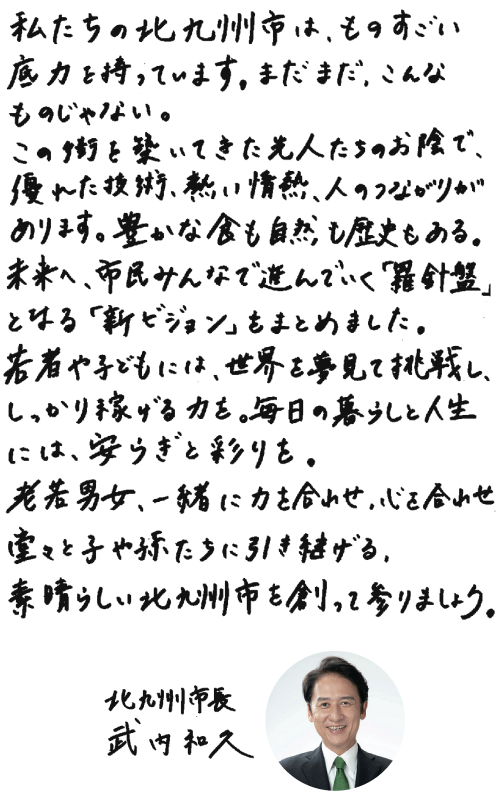 私たちの北九州市は、ものすごい
底力を持っています。まだまだ、こんな
ものじゃない。
この街を築いてきた先人たちのお陰で、
優れた技術、熱い情熱、人のつながりが
あります。豊かな食も自然も歴史もある。
未来へ、市民みんなで進んでいく「羅針盤」
となる「新ビジョン」をまとめました。
若者や子どもには、世界を夢見て挑戦し、
しっかり稼げる力を。毎日の暮らしと人生
には、安らぎと彩りを。
老若男女、一緒に力を合わせ、心を合わせ
堂々と子や孫たちに引き継げる、
素晴らしい北九州市を創って参りましょう。
北九州市長
武内和久